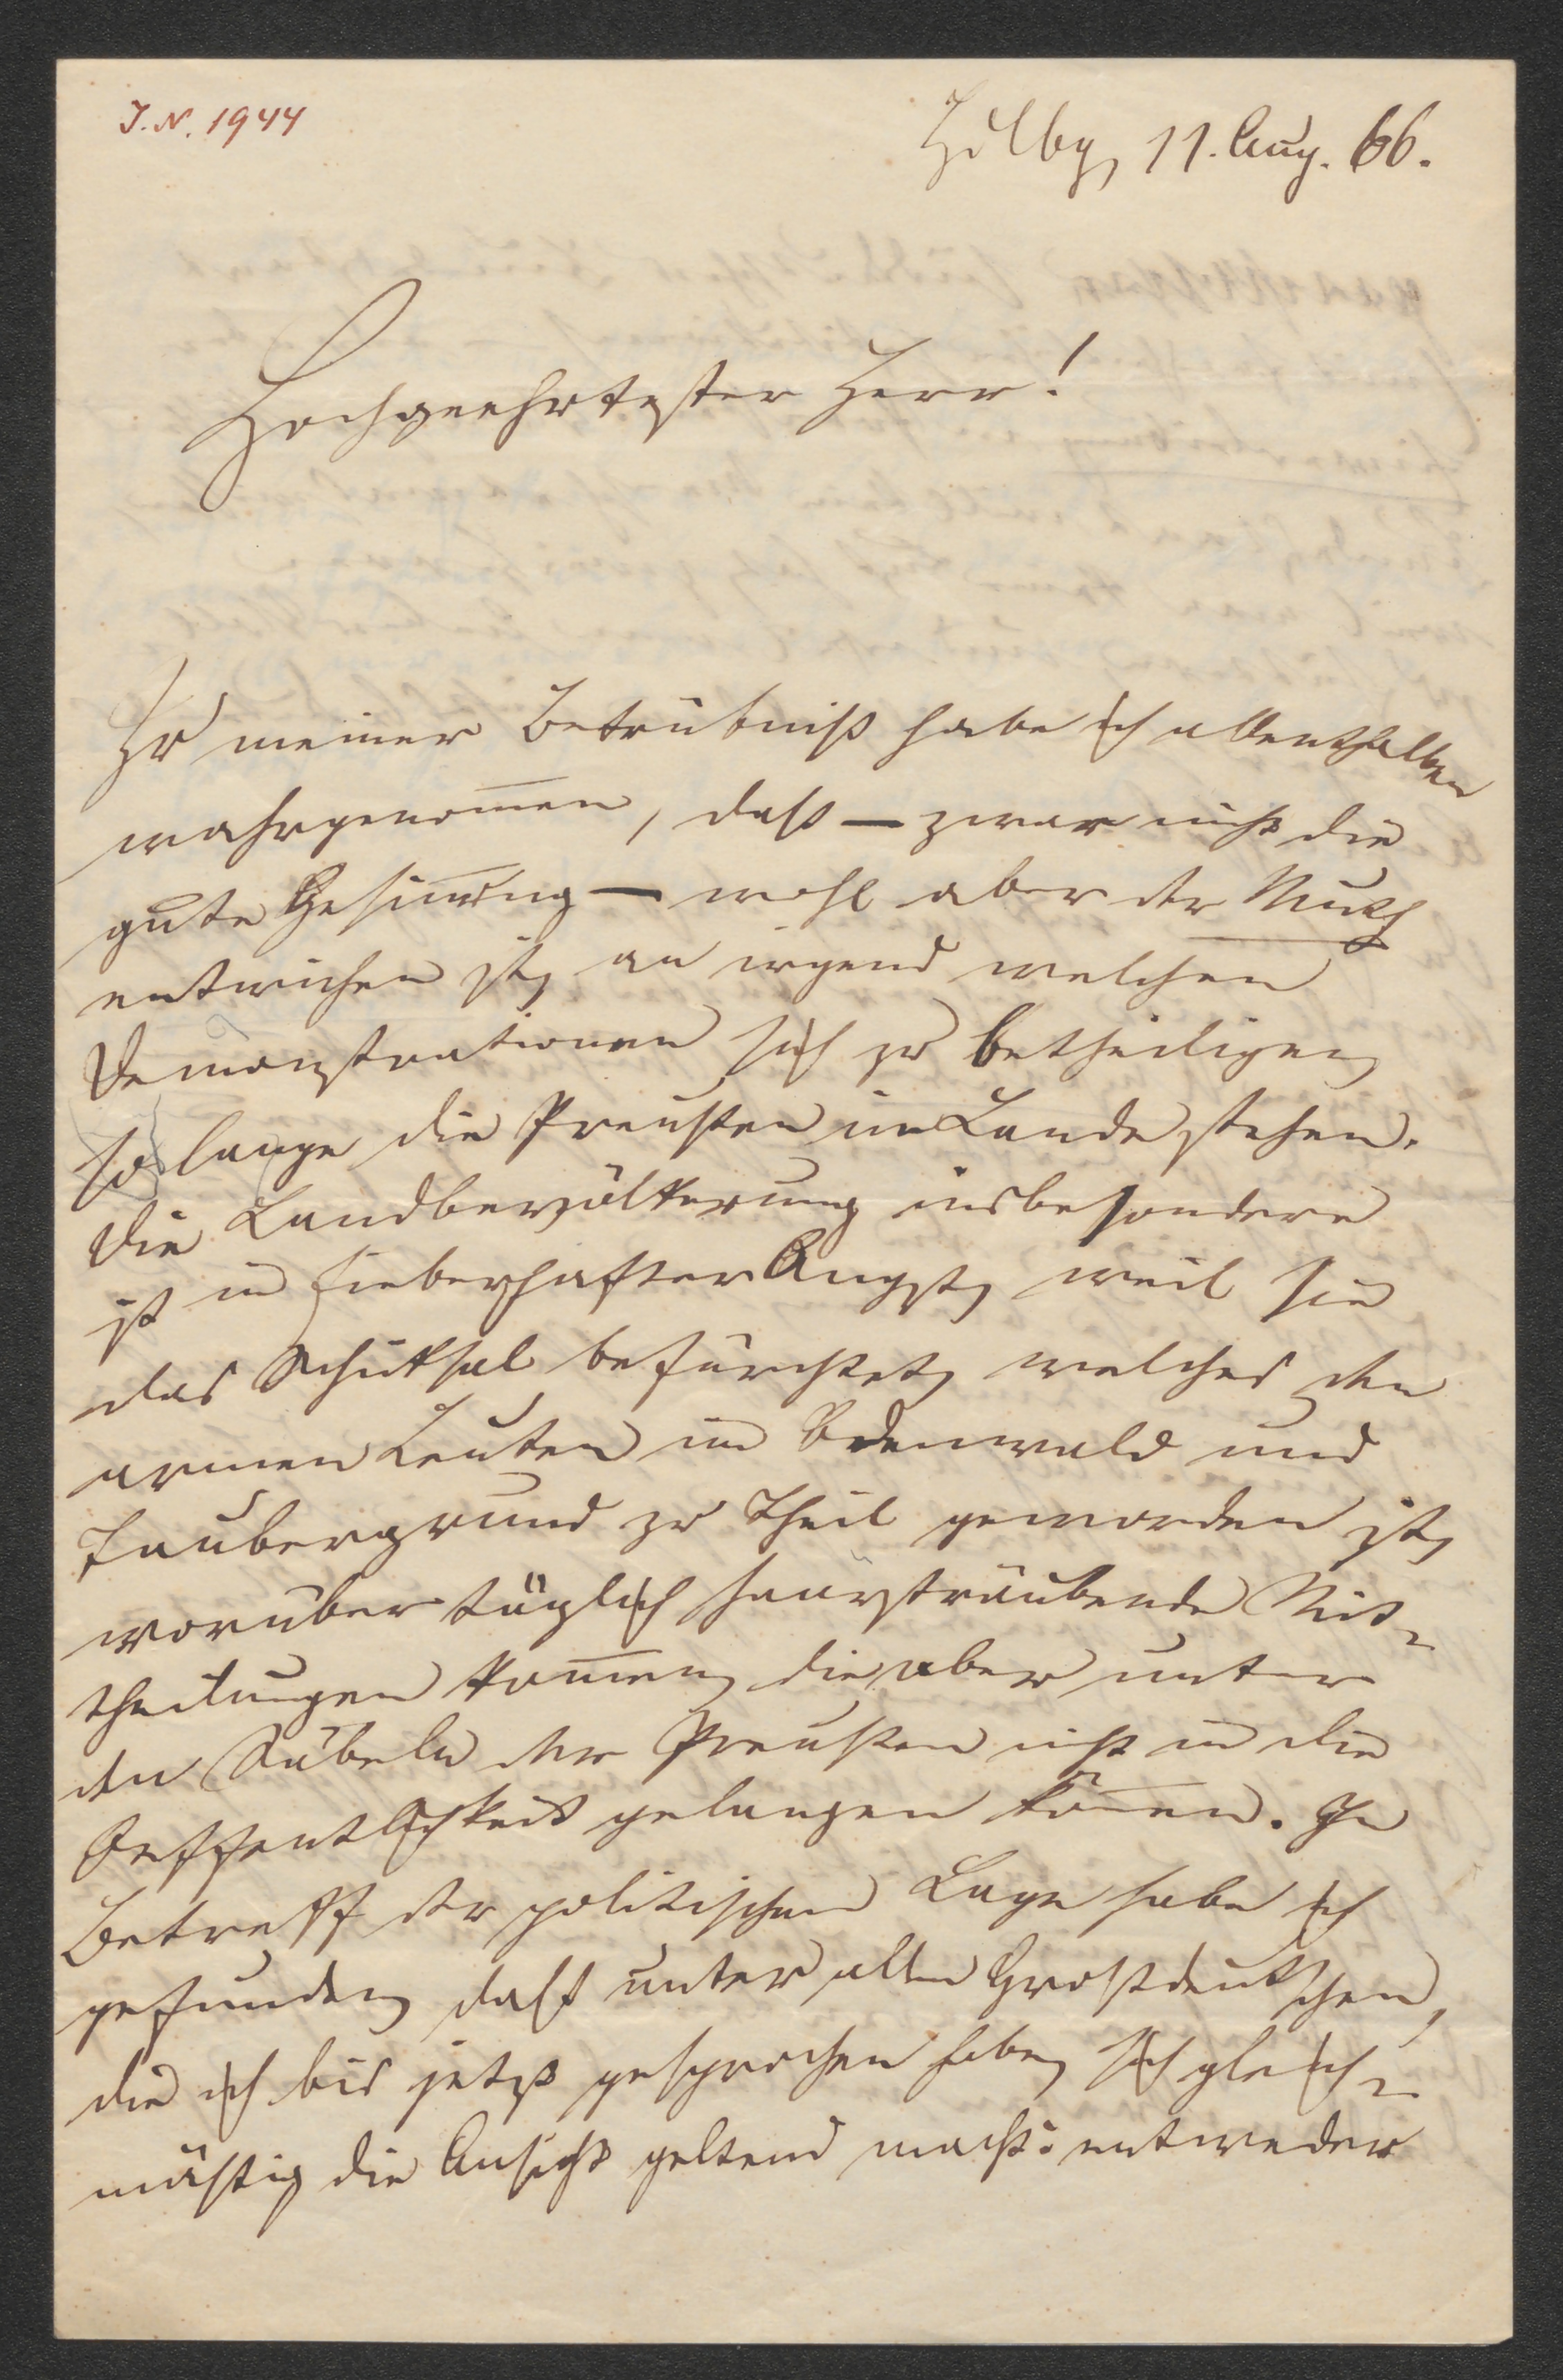 J. N. 1944
Hdlbg, 11. Aug. 66.
Hochgeehrtester Herr!
Zu meiner Betrübniß habe ich allenthalben
wahrgenom̅en, daß — zwar nicht die
gute Gesin̅ung — wohl aber der Muth
entwichen ist, an irgend welchen
Demonstrationen sich zu betheiligen,
so lange die Preußen im Lande stehen.
Die Landbevölkerung insbesondere
ist in fieberhafter Angst, weil sie
das Schicksal befürchtet, welches den
armen Leuten im Odenwald und
Taubergrund zu Theil geworden ist,
worüber täglich haarsträubende Mit-
theilungen kom̅en, die aber unter
den Säbeln der Preußen nicht in die
Oeffentlichkeit gelangen kön̅en. In
Betreff der politischen Lage habe ich
gefunden, daß unter allen Großdeutschen,
die ich bis jetzt gesprochen habe, sich gleich-
mäßig die Ansicht geltend macht: entweder